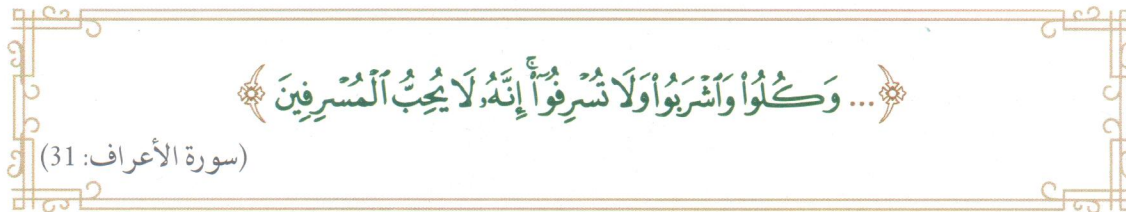 ﴿... وَكُلُوا۟ وَٱشْرَبُوا۟ وَلَا تُسْرِفُوٓا۟ ۚ إِنَّهُۥ لَا يُحِبُّ ٱلْمُسْرِفِينَ﴾
(سورة الأعراف: 31)